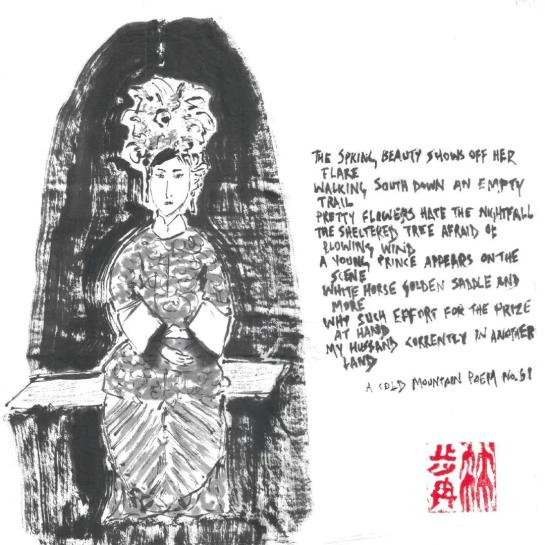 THE SPRING BEAUTY SHOWS OFF HER
FLARE
WALKING SOUTH DOWN AN EMPTY
TRAIL
PRETTY FLOWERS HATE THE NIGHTFALL
THE SHELTERED TREE AFRAID OF
BLOWING WIND
A YOUNG PRINCE APPEARS ON THE
SCENE
WHITE HORSE GOLDEN SADDLE AND
MORE
WHY SUCH EFFORT FOR THE PRIZE
AT HAND
MY HUSBAND CURRENTLY IN ANOTHER
LAND
A COLD MOUNTAIN POEM NO.